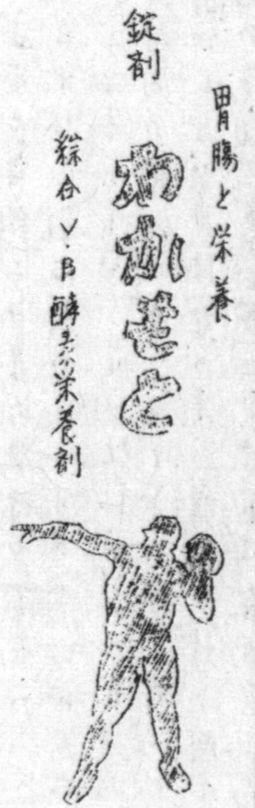 胃腸と栄養
錠剤
わかもと
綜合V.B酵素栄養剤